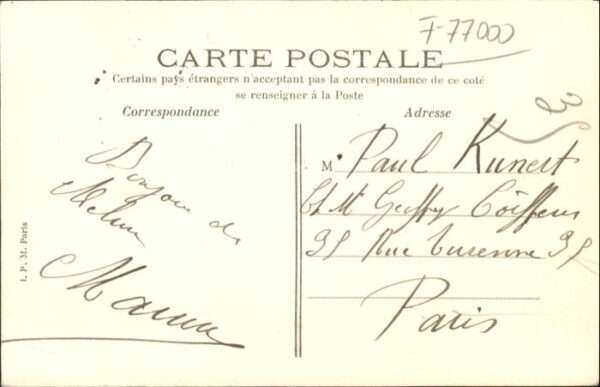 F-77000
CARTE POSTALE
Certains pays étrangers n'acceptant pas la correspondance de ce coté
se renseigner à la Poste
Correspondance
Adresse
Bonjour de
Melun
I. P. M. Paris
M Paul Kunert
Ch Mr Geffroy Coiffeur
35 Rue Turenne 35
Paris